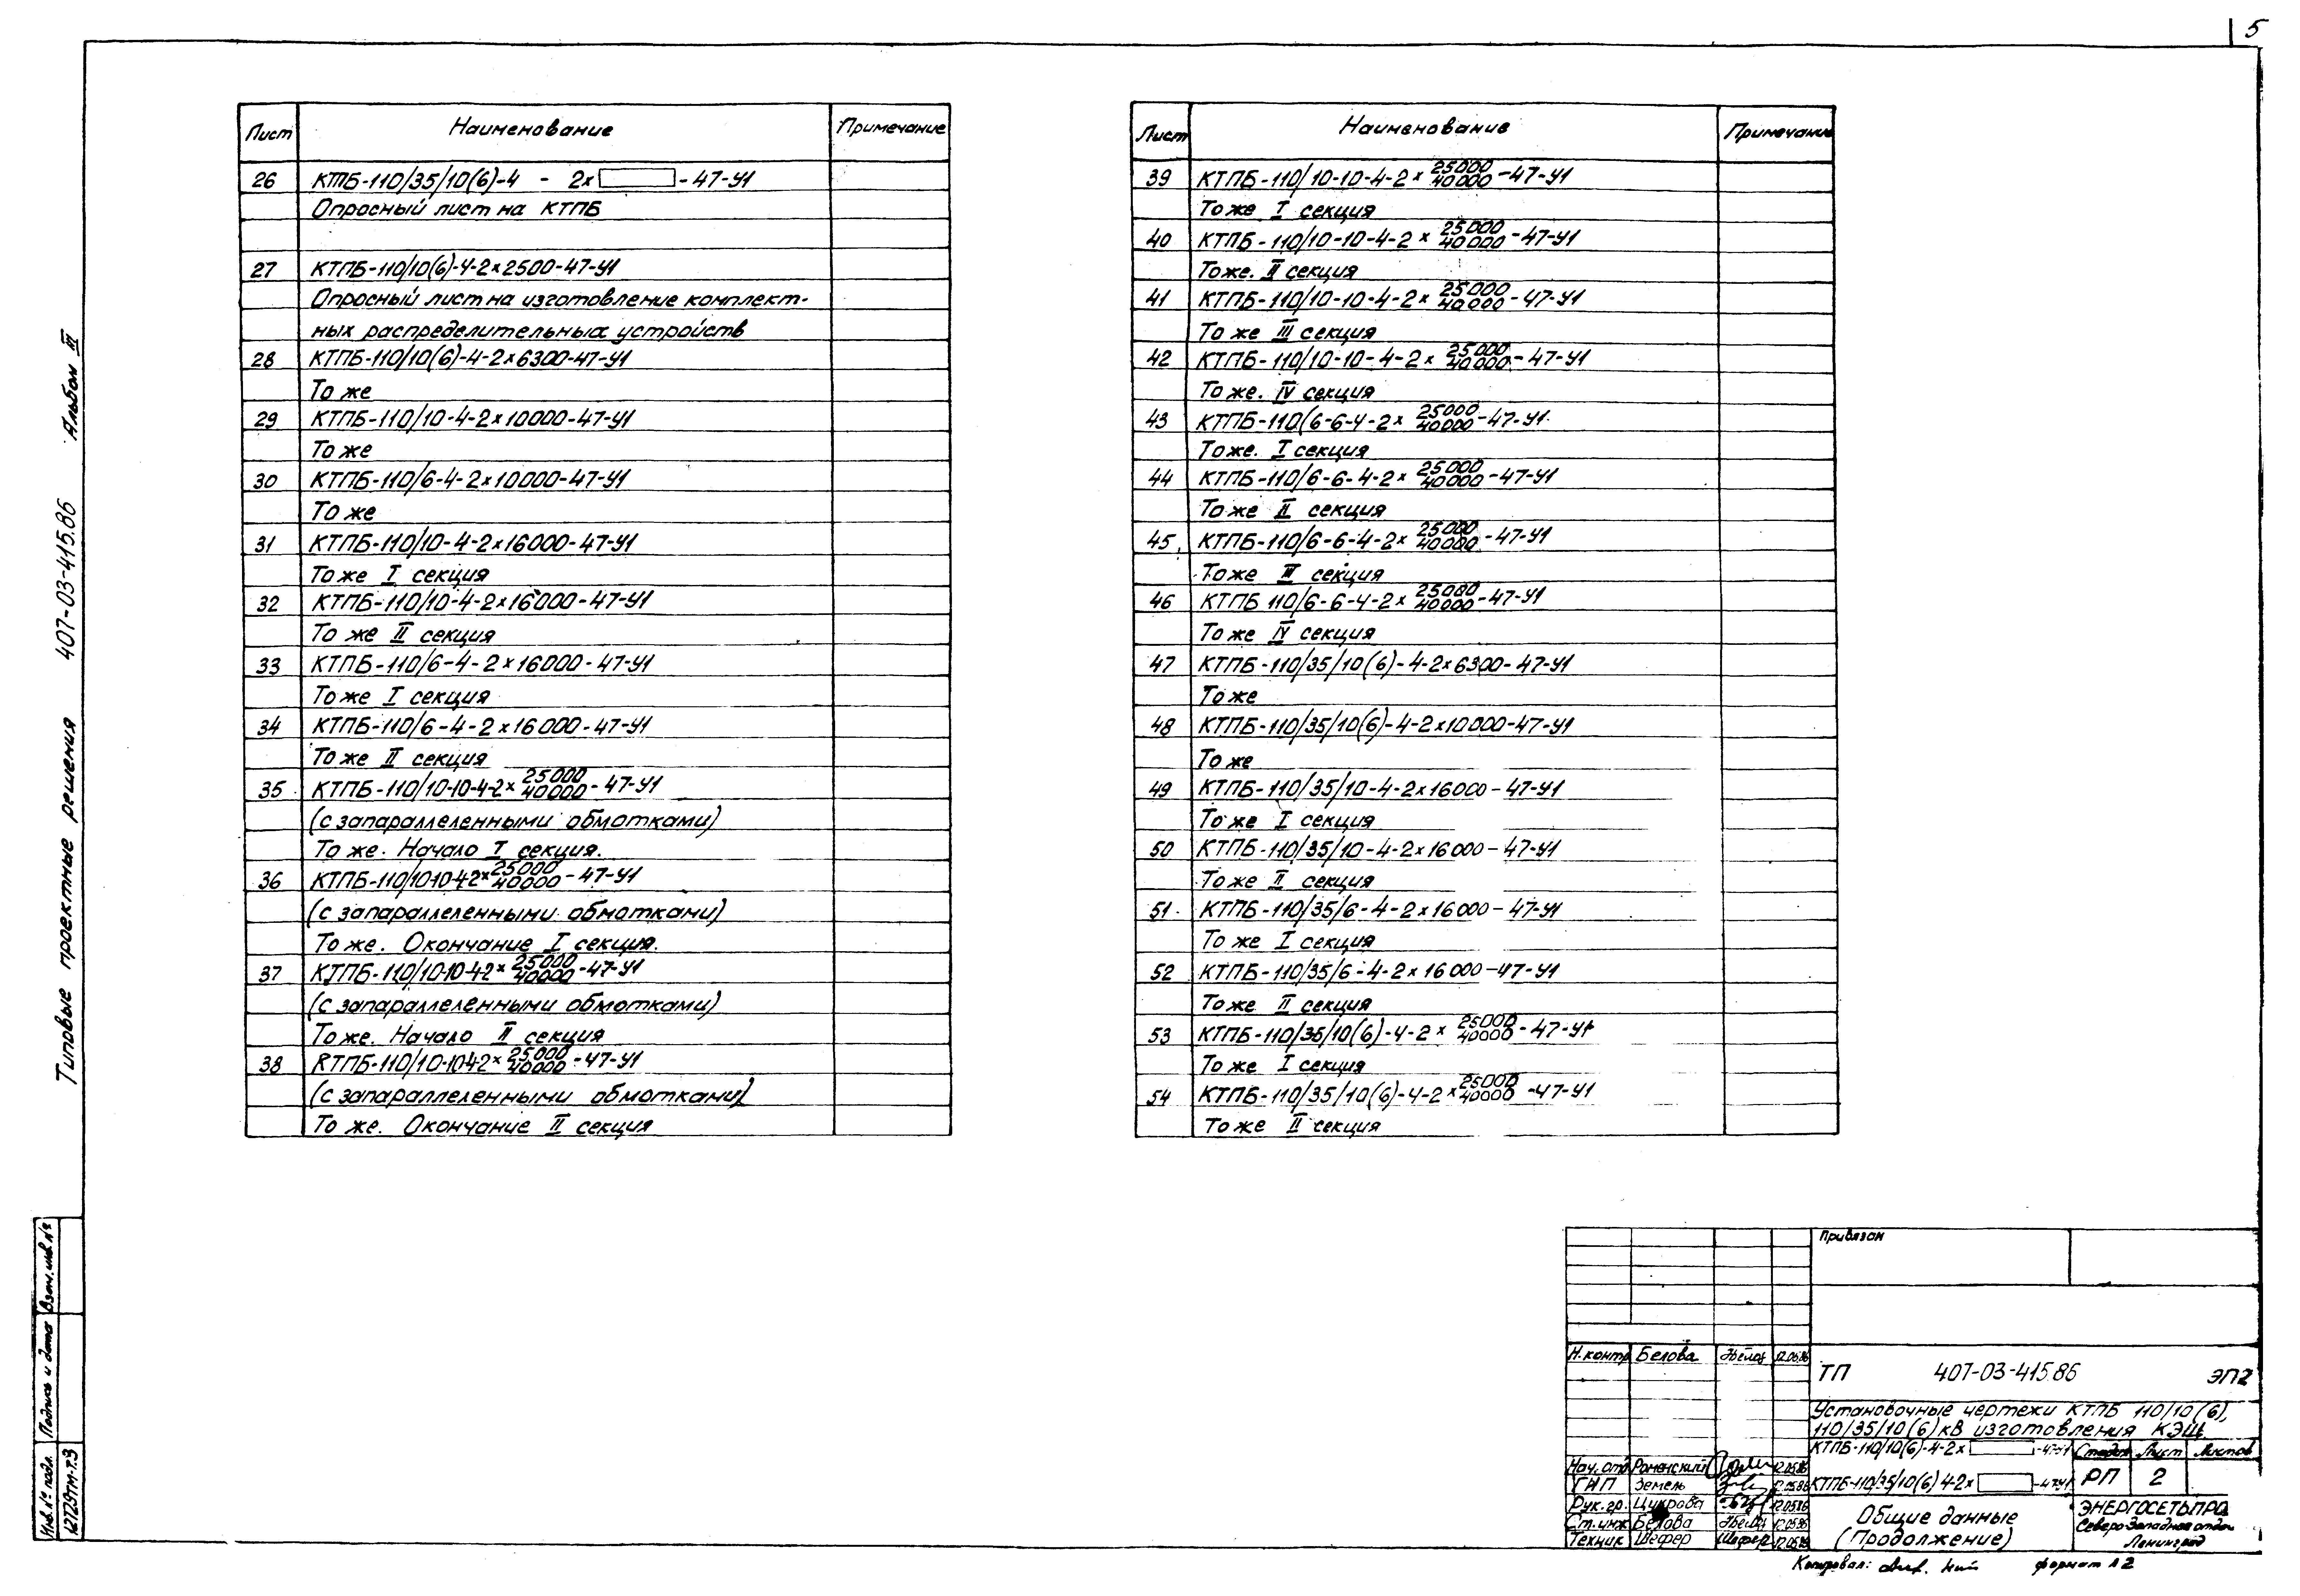 5
Лист Наименование Примечание
26 КТПБ-110/35/10(6)-4 - 2х -47-У1
Опросный лист на КТПБ
27 КТПБ-110/10(6)-4-2х2500-47-У1
Опросный лист на изготовление комплект-
ных распределительных устройств
28 КТПБ-110/10(6)-4-2х6300-47-У1
То же
29 КТПБ-110/10-4-2х10000-47-У1
То же
30 КТПБ-110/6-4-2х10000-47-У1
То же
31 КТПБ-110/10-4-2х16000-47-У1
То же I секция
32 КТПБ-110/10-4-2х16000-47-У1
То же II секция
33 КТПБ-110/6-4-2х16000-47-У1
То же I секция
34 КТПБ-110/6-4-2х16000-47-У1
То же II секция
35 КТПБ-110/10-10-4-2х 25000/40000 -47-У1
(с запараллеленными обмотками)
То же. Начало I секция.
36 КТПБ-110/10-10-4-2х 25000/40000 -47-У1
(с запараллеленными обмотками)
То же. Окончание I секция.
37 КТПБ-110/10-10-4-2х 25000/40000 -47-У1
(с запараллеленными обмотками)
То же. Начало II секция
38 КТПБ-110/10-10-4-2х 25000/40000 -47-У1
(с запараллеленными обмотками)
То же. Окончание II секция
Лист Наименование Примечание
39 КТПБ-110/10-10-4-2х 25000/40000 -47-У1
То же I секция
40 КТПБ-110/10-10-4-2х 25000/40000 -47-У1
То же. II секция
41 КТПБ-110/10-10-4-2х 25000/40000 -47-У1
То же III секция
42 КТПБ-110/10-10-4-2х 25000/40000 -47-У1
То же. IV секция
43 КТПБ-110(6-6-4-2х 25000/40000 -47-У1.
То же. I секция
44 КТПБ-110/6-6-4-2х 25000/40000 -47-У1
То же II секция
45 КТПБ-110/6-6-4-2х 25000/40000 -47-У1
То же III секция
46 КТПБ 110/6-6-4-2х 25000/40000 -47-У1
То же IV секция
47 КТПБ-110/35/10(6)-4-2х6300-47-У1
То же
48 КТПБ-110/35/10(6)-4-2х10000-47-У1
То же
49 КТПБ-110/35/10-4-2х16000-47-У1
То же I секция
50 КТПБ-110/35/10-4-2х16000-47-У1
То же II секция
51 КТПБ-110/35/6-4-2х16000-47-У1
То же I секция
52 КТПБ-110/35/6-4-2х16000-47-У1
То же II секция
53 КТПБ-110/35/10(6)-4-2х 25000/40000 -47-У1
То же I секция
54 КТПБ-110/35/10(6)-4-2х 25000/40000 -47-У1
То же II секция
Типовые проектные решения 407-03-415.86 Альбом III
Инв. № подл. Подпись и дата Взам. инв. №
12729тм-т.3
Привязан
Н. контр Белова 12.05.86
Нач. отд Роменский 12.05.86
ГИП Земель 12.05.86
Рук. гр. Цукрова 12.05.86
Ст. инж Белова 12.05.86
Техник Шефер 12.05.86
ТП 407-03-415.86 ЭП2
Установочные чертежи КТПБ 110/10(6),
110/35/10(6)кВ изготовления КЭЩ
КТПБ-110/10(6)-4-2х -47-У1
КТПБ-110/35/10(6) 4-2х -47-У1
Стадия Лист Листов
РП 2
Общие данные
(Продолжение)
ЭНЕРГОСЕТЬПРО
Северо-Западное отдел
Ленинград
Копировал: формат А2